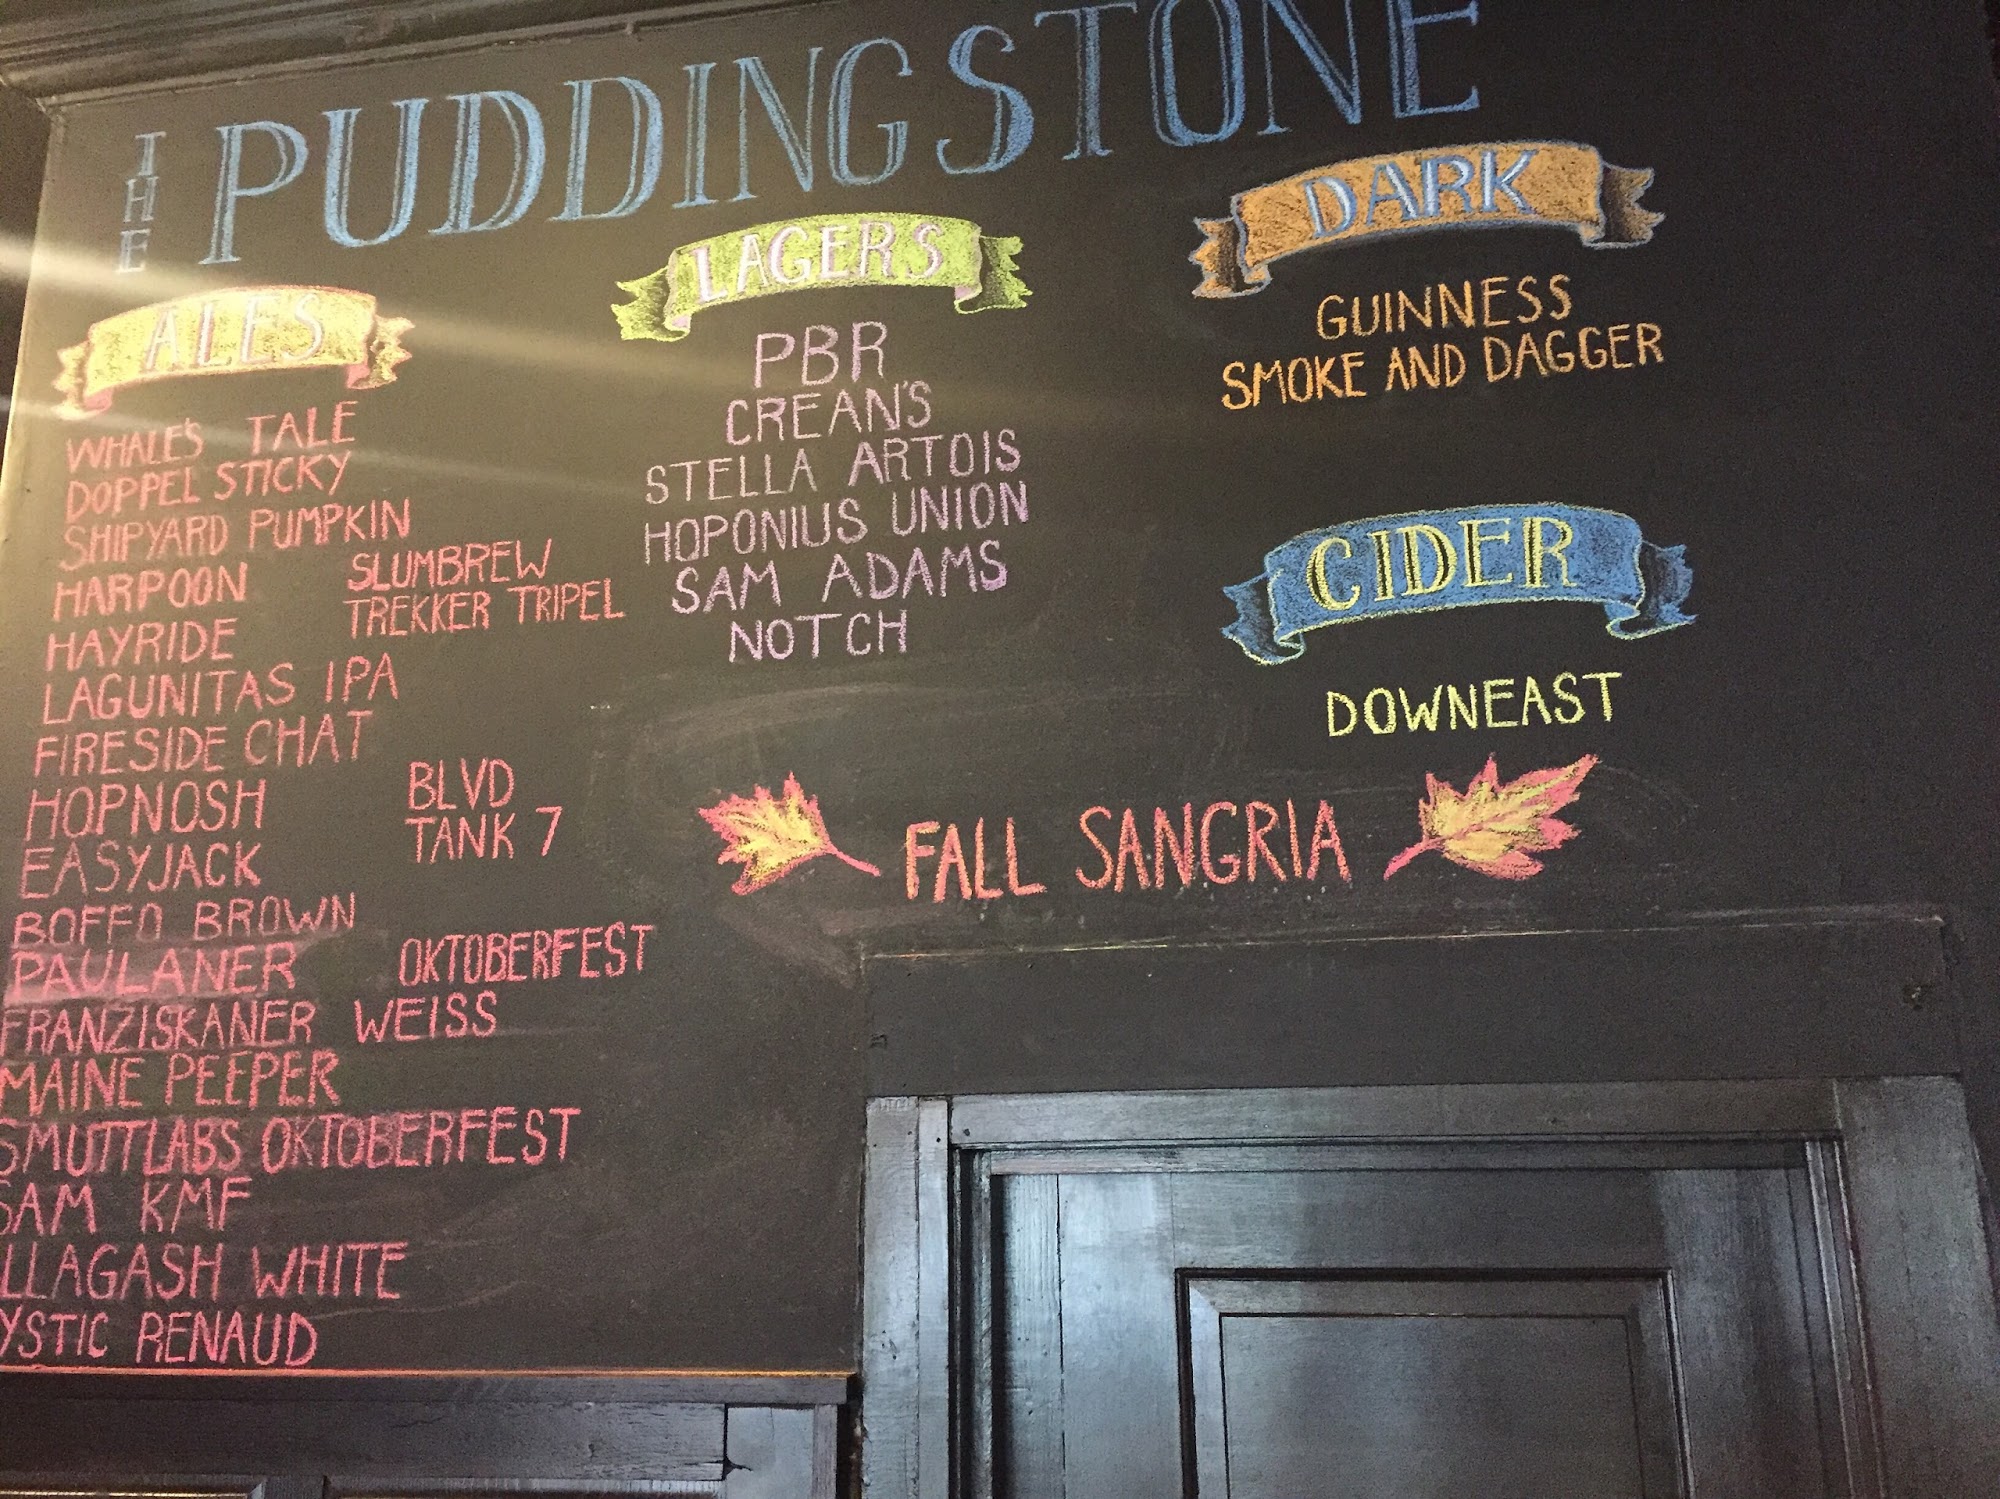 THE PUDDINGSTONE
ALES
WHALE'S TALE
DOPPEL STICKY
SHIPYARD PUMPKIN
HARPOON
HAYRIDE
LAGUNITAS IPA
FIRESIDE CHAT
HOPNOSH
EASYJACK
BOFFO BROWN
PAULANER OKTOBERFEST
FRANZISKANER WEISS
MAINE PEEPER
SMUTTLABS OKTOBERFEST
SAM KMF
LLAGASH WHITE
YSTIC RENAUD
SLUMBREW
TREKKER TRIPEL
BLVD
TANK 7
LAGERS
PBR
CREAN'S
STELLA ARTOIS
HOPONIUS UNION
SAM ADAMS
NOTCH
DARK
GUINNESS
SMOKE AND DAGGER
CIDER
DOWNEAST
FALL SANGRIA